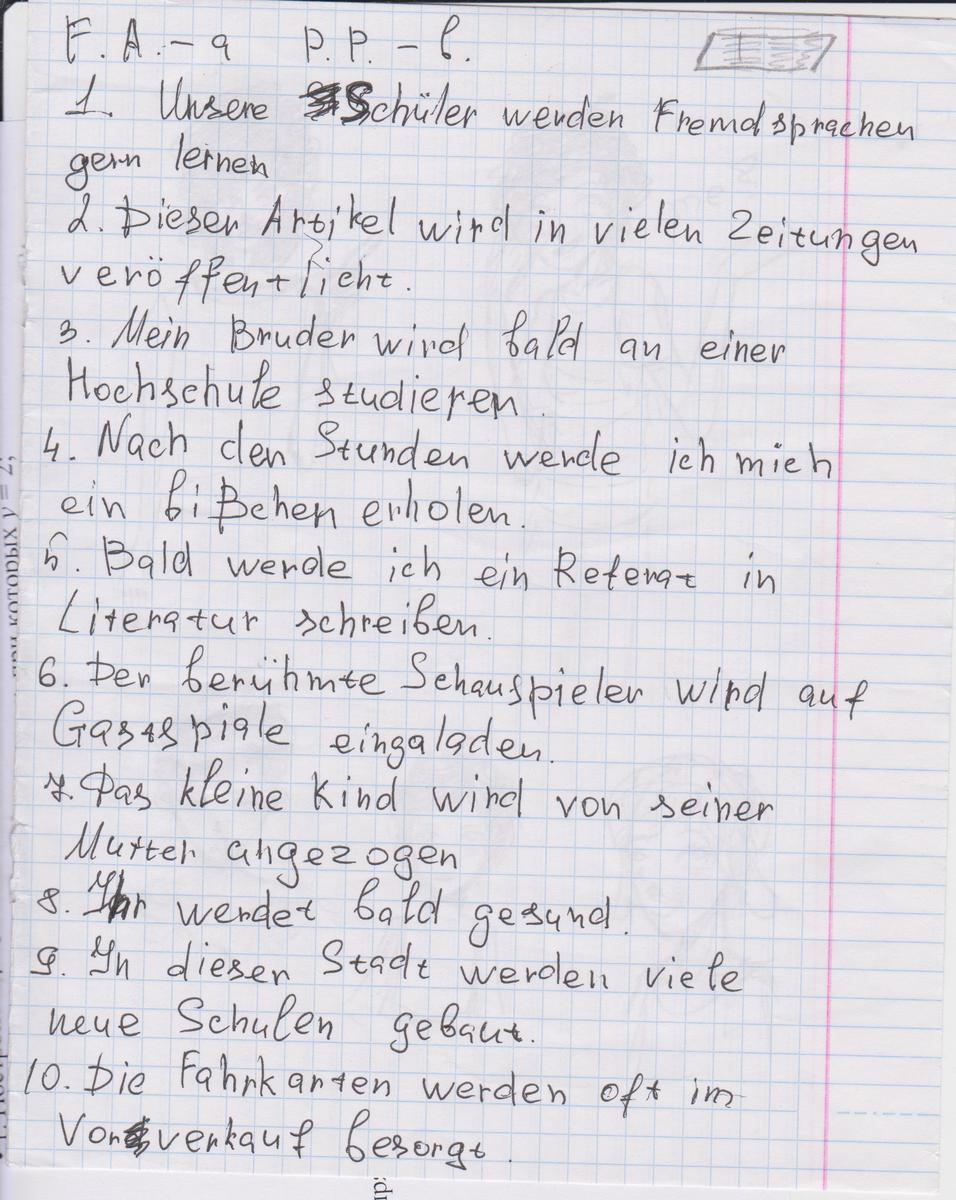 F. A. - a P.P. - b.
1. Unsere Schüler werden Fremdsprachen
gern lernen
2. Dieser Artikel wird in vielen Zeitungen
veröffentlicht.
3. Mein Bruder wird bald an einer
Hochschule studieren.
4. Nach den Stunden werde ich mich
ein bißchen erholen.
5. Bald werde ich ein Referat in
Literatur schreiben.
6. Der berühmte Schauspieler wird auf
Gastspiale eingaladen.
7. Das kleine Kind wird von seiner
Mutter angezogen
8. Ihr werdet bald gesund.
9. In dieser Stadt werden viele
neue Schulen gebaut.
10. Die Fahrkarten werden oft im
Vorverkauf besorgt.
при которых y = 2,